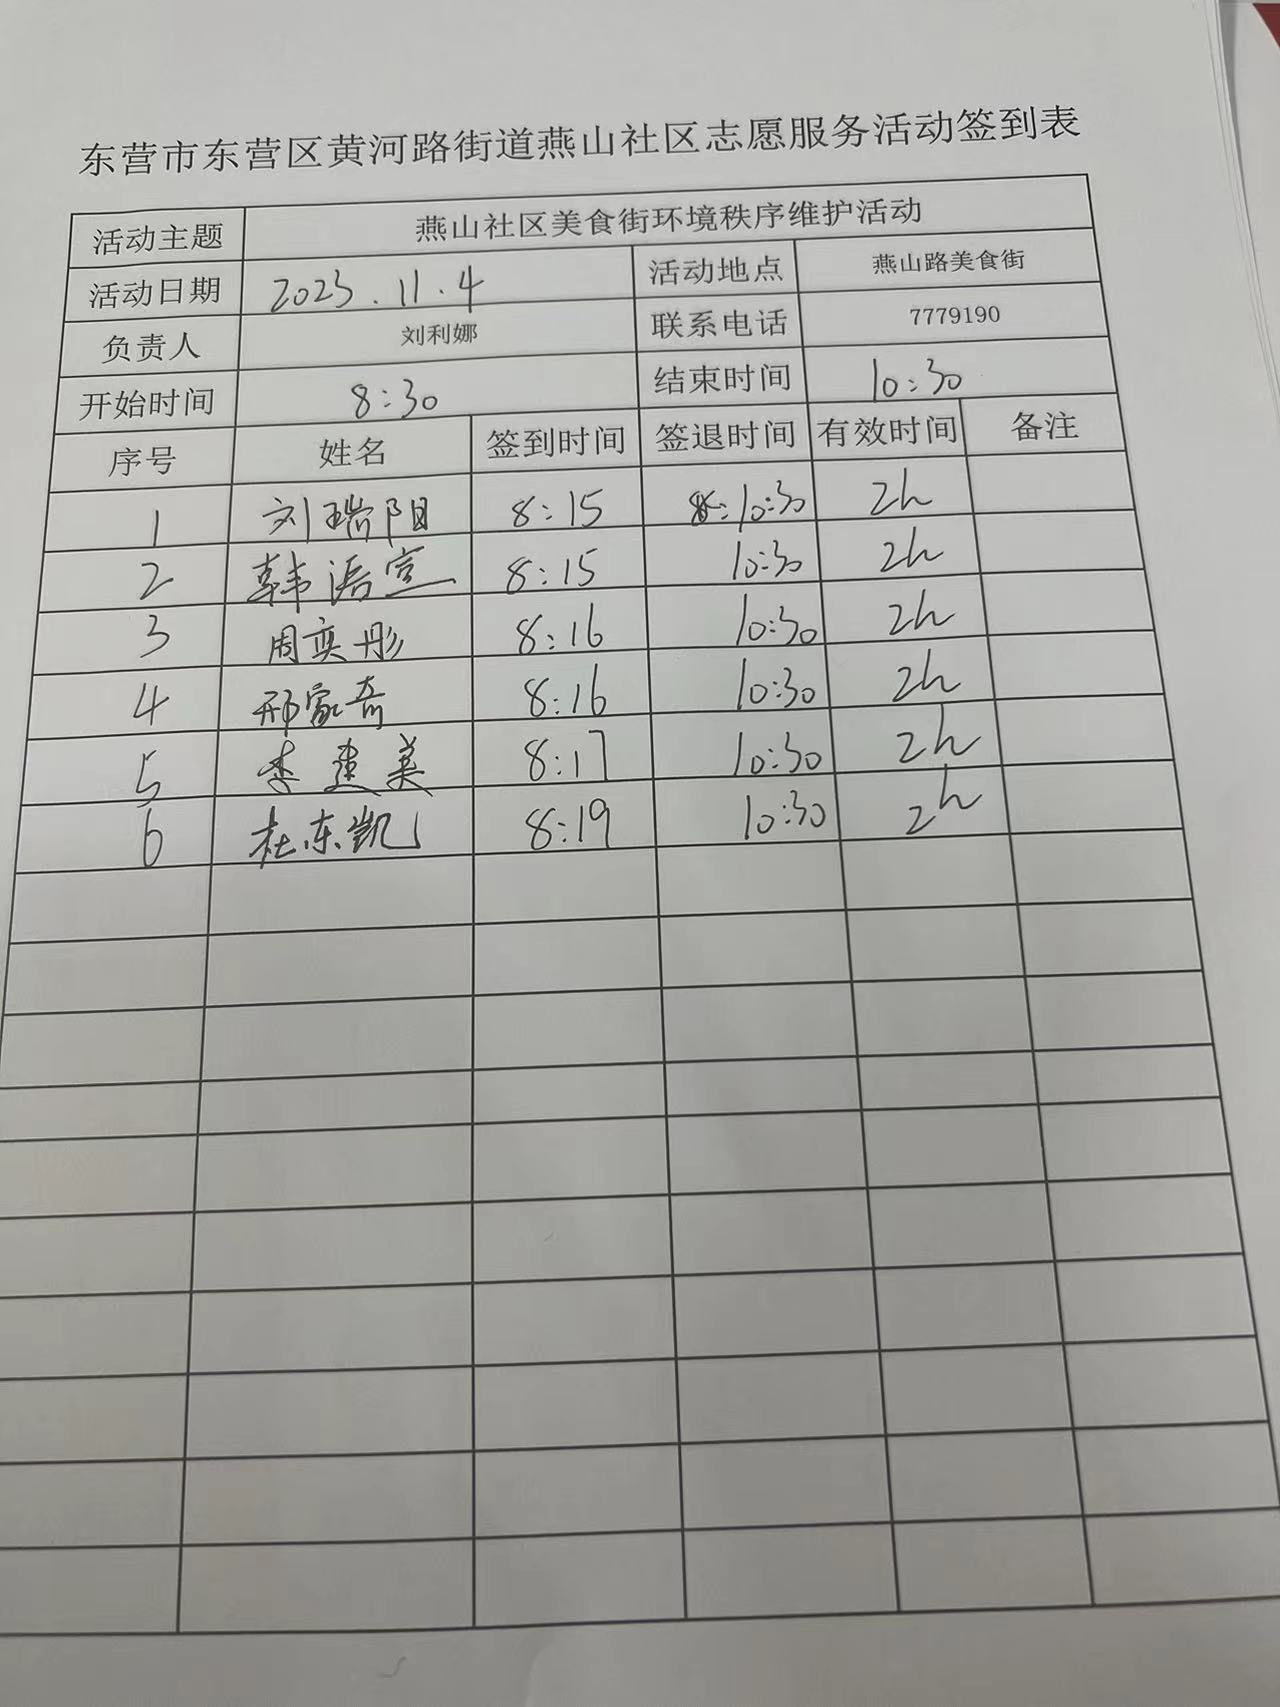 东营市东营区黄河路街道燕山社区志愿服务活动签到表
活动主题 燕山社区美食街环境秩序维护活动
活动日期 2023.11.4 活动地点 燕山路美食街
负责人 刘利娜 联系电话 7779190
开始时间 8:30 结束时间 10:30
序号 姓名 签到时间 签退时间 有效时间 备注
1 刘瑞阳 8:15 10:30 2h
2 韩语萱 8:15 10:30 2h
3 周奕彤 8:16 10:30 2h
4 邢家奇 8:16 10:30 2h
5 李建美 8:17 10:30 2h
6 杜东凯 8:19 10:30 2h